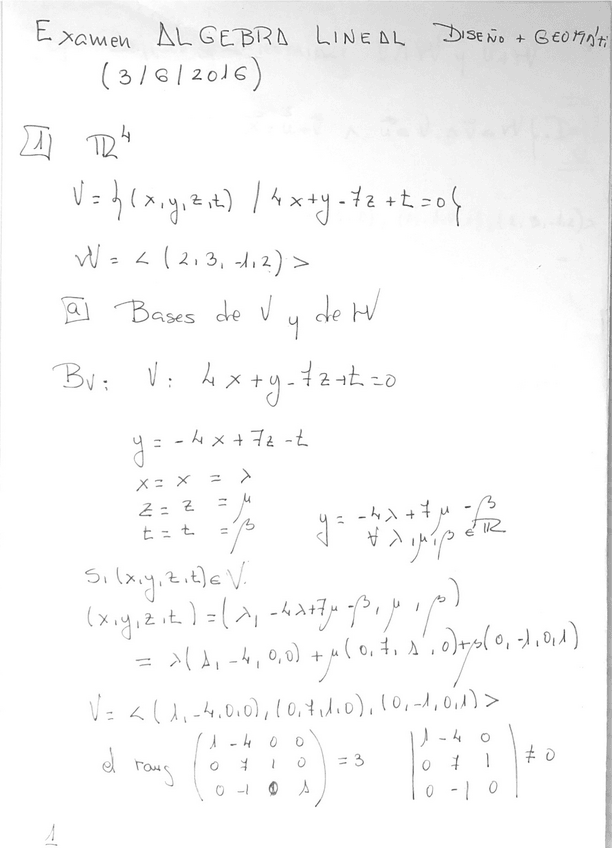 Examen ALGEBRA LINEAL DISEÑO + GEOMÁTI
(3/6/2016)
1 ℝ⁴
V = {(x,y,z,t) / 4x+y-7z+t=0}
W = < (2,3,-1,2) >
a Bases de V y de W
Bv: V: 4x+y-7z+t=0
y = -4x+7z-t
x = x = λ
z = z = μ
t = t = β
y = -4λ+7μ-β
∀ λ,μ,β ∈ ℝ
Si (x,y,z,t) ∈ V.
(x,y,z,t) = (λ, -4λ+7μ-β, μ, β)
= λ(1,-4,0,0) + μ(0,7,1,0) + β(0,-1,0,1)
V = < (1,-4,0,0), (0,7,1,0), (0,-1,0,1) >
1 -4 0 0
el rang ( 0 7 1 0 ) = 3
0 -1 0 1
1 -4 0
| 0 7 1 | ≠ 0
0 -1 0
1